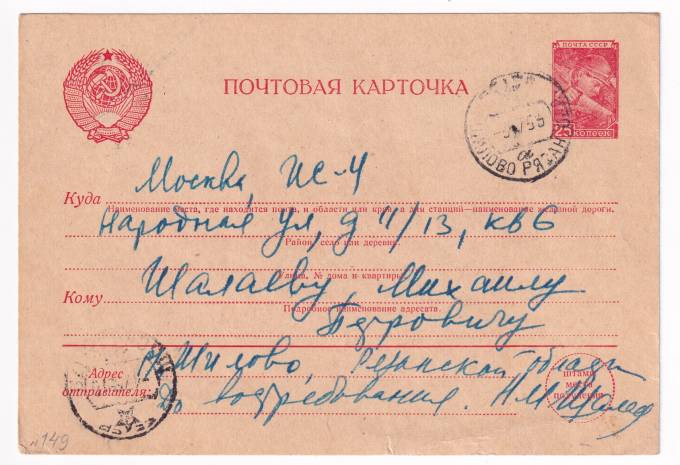 ПОЧТА СССР
25 КОПЕЕК
ПОЧТОВАЯ КАРТОЧКА
Москва, ИС-4
Куда
Наименование места, где находится почта, и области или края, а для станций—наименование железной дороги.
Народная ул, д 4/13, кв 6
Район, село или деревня.
Улица, № дома и квартиры.
Шалаеву Михаилу
Кому
Подробное наименование адресата.
Петровичу
Шилово, Рязанской области
Адрес
отправителя:
до востребования.
штамп
места
получения
№149